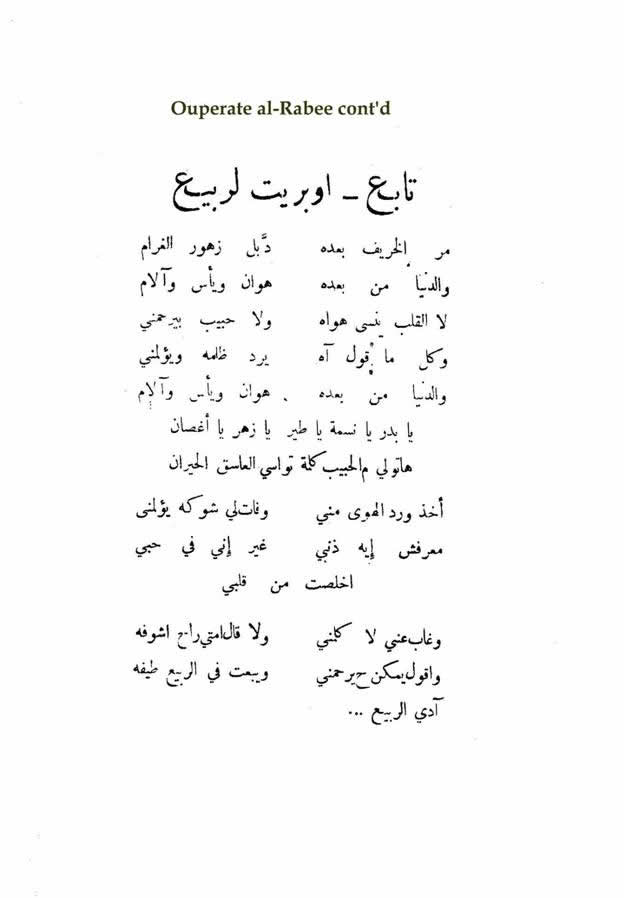 Ouperate al-Rabee cont'd
تابع - اوبريت لربيع
مر الخريف بعده دَّبل زهور الغرام
والدنيا من بعده هوان ويأس وآلام
لا القلب ينسى هواه ولا حبيب بيرحمني
وكل ما أقول آه يرد ظلمه ويؤلمني
والدنيا من بعده هوان ويأس وآلإم
يا بدر يا نسمة يا طير يا زهر يا أغصان
هاتولي م الحبيب كلمة تواسي العاسق الحيران
أخذ ورد الهوى مني وفات لي شوكه يؤلمنى
معرفش إيه ذنبي غير إني في حبي
اخلصت من قلبي
وغاب عني لا كلمني ولا قال امتي راح اشوفه
واقول يمكن ح يرحمني ويبعت في الربيع طيفه
آدي الربيع ...